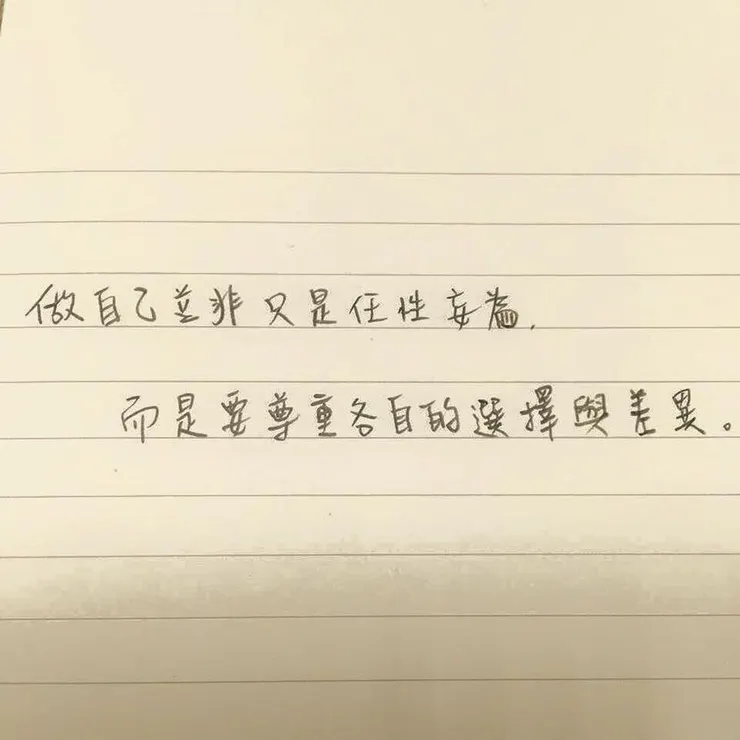 做自己並非只是任性妄為,
而是要尊重各自的選擇與差異。